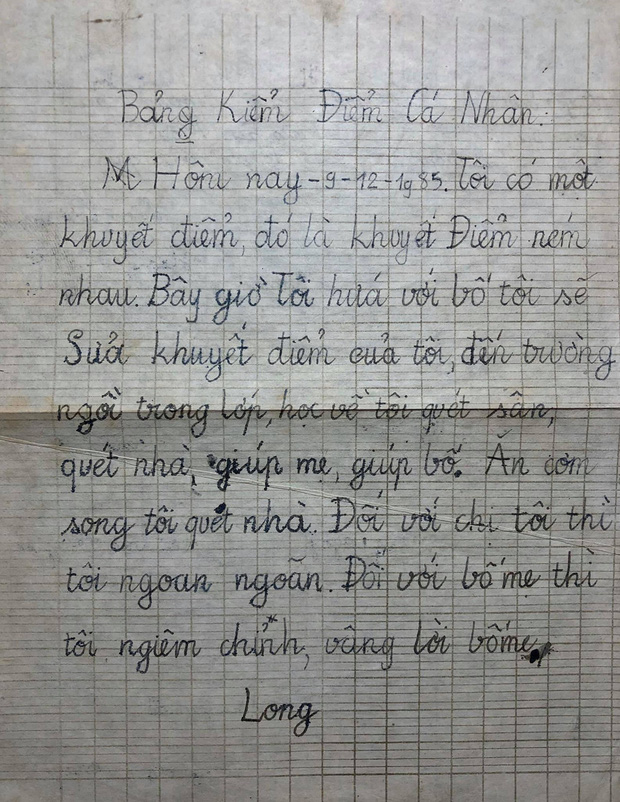 Bảng Kiểm Điểm Cá Nhân:
M Hôm nay - 9 - 12 - 1985. Tôi có một
khuyết điểm, đó là khuyết Điểm ném
nhau. Bây giờ Tôi hứa với bố tôi sẽ
Sửa khuyết điểm của tôi, đến trường
ngồi trong lớp, học về tôi quét sân,
quét nhà, giúp mẹ, giúp bố. Ăn cơm
song tôi quét nhà. Đối với chị tôi thì
tôi ngoan ngoãn. Đối với bố mẹ thì
tôi ngiêm chỉnh, vâng lời bố mẹ,
Long